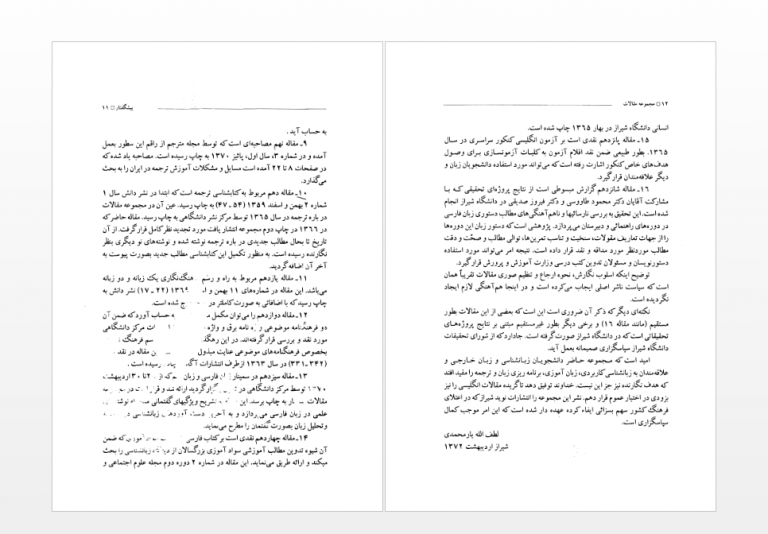 پیشگفتار □ ۱۱
به حساب آید.
۹ـ مقاله نهم مصاحبه‌ای است که توسط مجله مترجم از راقم این سطور بعمل
آمده و در شماره ۳، سال اول، پائیز ۱۳۷۰ به چاپ رسیده است. مصاحبه یاد شده که
در صفحات ۸ تا ۲۲ آمده است مسایل و مشکلات آموزش ترجمه در ایران را به بحث
می‌گذارد.
۱۰ـ مقاله دهم مربوط به کتابشناسی ترجمه است که ابتدا در نشر دانش سال ۱
شماره ۲ بهمن و اسفند ۱۳۵۹ (۵۴ـ۴۷) به چاپ رسید. عین آن در مجموعه مقالات
در باره ترجمه در سال ۱۳۶۵ توسط مرکز نشر دانشگاهی به چاپ رسید. مقاله حاضر که
در ۱۳۶۶ در چاپ دوم مجموعه انتشار یافت مورد تجدید نظر کامل قرار گرفت. از آن
تاریخ تا بحال مطالب جدیدی در باره ترجمه نوشته شده و نوشته‌های تو دیگری بنظر
نگارنده رسیده است. به منظور تکمیل این کتابشناسی مطالب جدید بصورت پیوست به
آخر آن اضافه گردید.
۱۱ـ مقاله یازدهم مربوط به راه و رسم هنگ‌نگاری یک زبانه و دو زبانه
می‌باشد. این مقاله در شماره‌های ۱۱ بهمن و ا ۱۳۶۹ (۲۲ـ۱۷) نشر دانش به
چاپ رسید که با اضافاتی به صورت کاملتر در ج شده است.
۱۲ـ مقاله دوازدهم را می‌توان مکمل م حساب آورد که ضمن آن
دو فرهنگنامه موضوعی و نامه برق و واژه ات مرکز دانشگاهی
مورد نقد و بررسی قرار گرفته‌اند. در این سم فرهنگ
بخصوص فرهنگنامه‌های موضوعی عنایت مبذول ن مقاله در نقد
(۳۴۲ـ۳۳۱) در سال ۱۳۶۳ از طرف انتشارات آگ
۱۳ـ مقاله سیزدهم در سمینار ن فارسی و زبان که از ۲ تا ۳۰ اردیبهشت
توسط مرکز دانشگاهی در گردید ارائه شد و
مقالات به چاپ برسد. این تشریح ویژگیهای گفتمانی
علمی در زبان فارسی می‌پردازد و به زبانشناسی
وتحلیل زبان بصورت گفتمان را مطرح می‌نماید.
۱۴ـ مقاله چهاردهم نقدی است بر کتاب فارسی آموزی که ضمن
آن شیوه تدوین مطالب آموزشی سواد آموزی بزرگسالان از زبانشناسی را بحث
میکند و ارائه طریق می‌نماید. این مقاله در شماره ۲ دوره دوم مجله علوم اجتماعی و
۱۲ □ مجموعه مقالات
انسانی دانشگاه شیراز در بهار ۱۳۶۵ چاپ شده است.
۱۵ـ مقاله پانزدهم نقدی است بر آزمون انگلیسی کنکور سراسری در سال
۱۳۶۵. بطور طبیعی ضمن نقد اقلام آزمون به کلیات آزمونسازی برای وصول
هدف‌های خاص کنکور اشارت رفته است که می‌تواند مورد استفاده دانشجویان زبان و
دیگر علاقه‌مندان قرار گیرد.
۱۶ـ مقاله شانزدهم گزارش مبسوطی است از نتایج پروژه‌ای تحقیقی که با
مشارکت آقایان دکتر محمود طاووسی و دکتر فیروز صدیقی در دانشگاه شیراز انجام
شده است. این تحقیق به بررسی نارسائیها و ناهم‌آهنگی‌های مطالب دستوری زبان فارسی
در دوره‌های راهنمائی و دبیرستان می‌پردازد. پژوهشی است که دستور زبان این دوره‌ها
را از جهات تعاریف مقولات، سنخیت و تناسب تمرین‌ها، توالی مطالب و صحّت و دقت
مطالب موردنظر مورد مداقه و نقد قرار داده است. نتیجه امر می‌تواند مورد استفاده
دستورنویسان و مسئولان تدوین کتب درسی وزارت آموزش و پرورش قرار گیرد.
توضیح اینکه اسلوب نگارش، نحوه ارجاع و تنظیم صوری مقالات تقریباً همان
است که سیاست ناشر اصلی ایجاب می‌کرده است و در اینجا هم‌آهنگی لازم ایجاد
نگردیده است.
نکته‌ای دیگر که ذکر آن ضروری است این است که بعضی از این مقالات بطور
مستقیم (مانند مقاله ۱۶) و برخی دیگر بطور غیرمستقیم مبتنی بر نتایج پروژه‌های
تحقیقاتی است که در دانشگاه شیراز صورت گرفته است. جا دارد که از شورای تحقیقات
دانشگاه شیراز سپاسگزاری صمیمانه بعمل آید.
امید است که مجموعه حاضر دانشجویان زبانشناسی و زبان خارجی و
علاقه‌مندان به زبانشناسی کاربردی، زبان آموزی، برنامه ریزی زبان و ترجمه را مفید افتد
که هدف نگارنده نیز جز این نیست. خداوند توفیق دهد تا گزیده مقالات انگلیسی را نیز
بزودی در اختیار عموم قرار دهم. نشر این مجموعه را انتشارات نوید شیراز که در اعتلای
فرهنگ کشور سهم بسزائی ایفاء کرده عهده دار شده است که این امر موجب کمال
سپاسگزاری است.
لطف الله یارمحمدی
شیراز اردیبهشت ۱۳۷۲